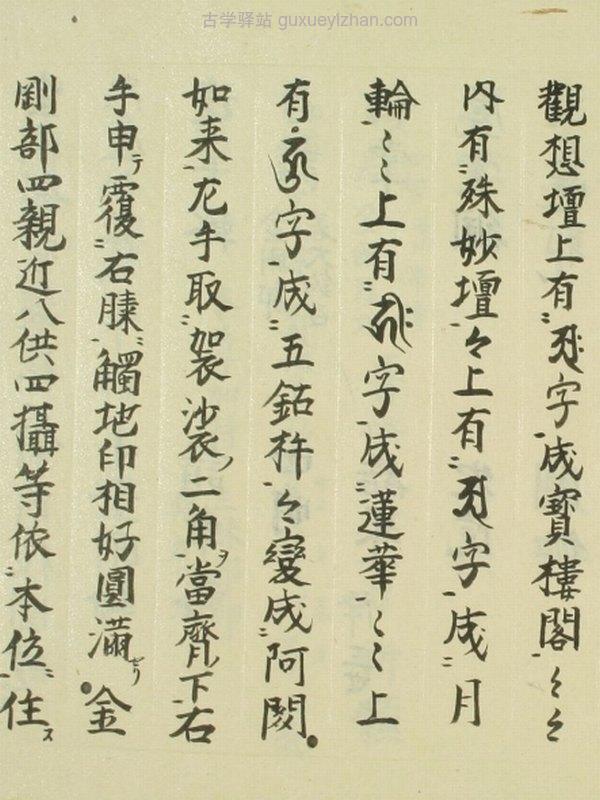 古学驿站 guxueyizhan.com
觀想壇上有字成寶樓閣々々
内有殊妙壇々上有字成月
輪々々上有字成蓮華々々上
有字成五鈷杵々變成阿閦
如来左手取袈裟ノ二角ヲ當齊下右
手申テ覆右膝觸地印相好圓滿セリ金
剛部四親近八供四攝等依本位住ス